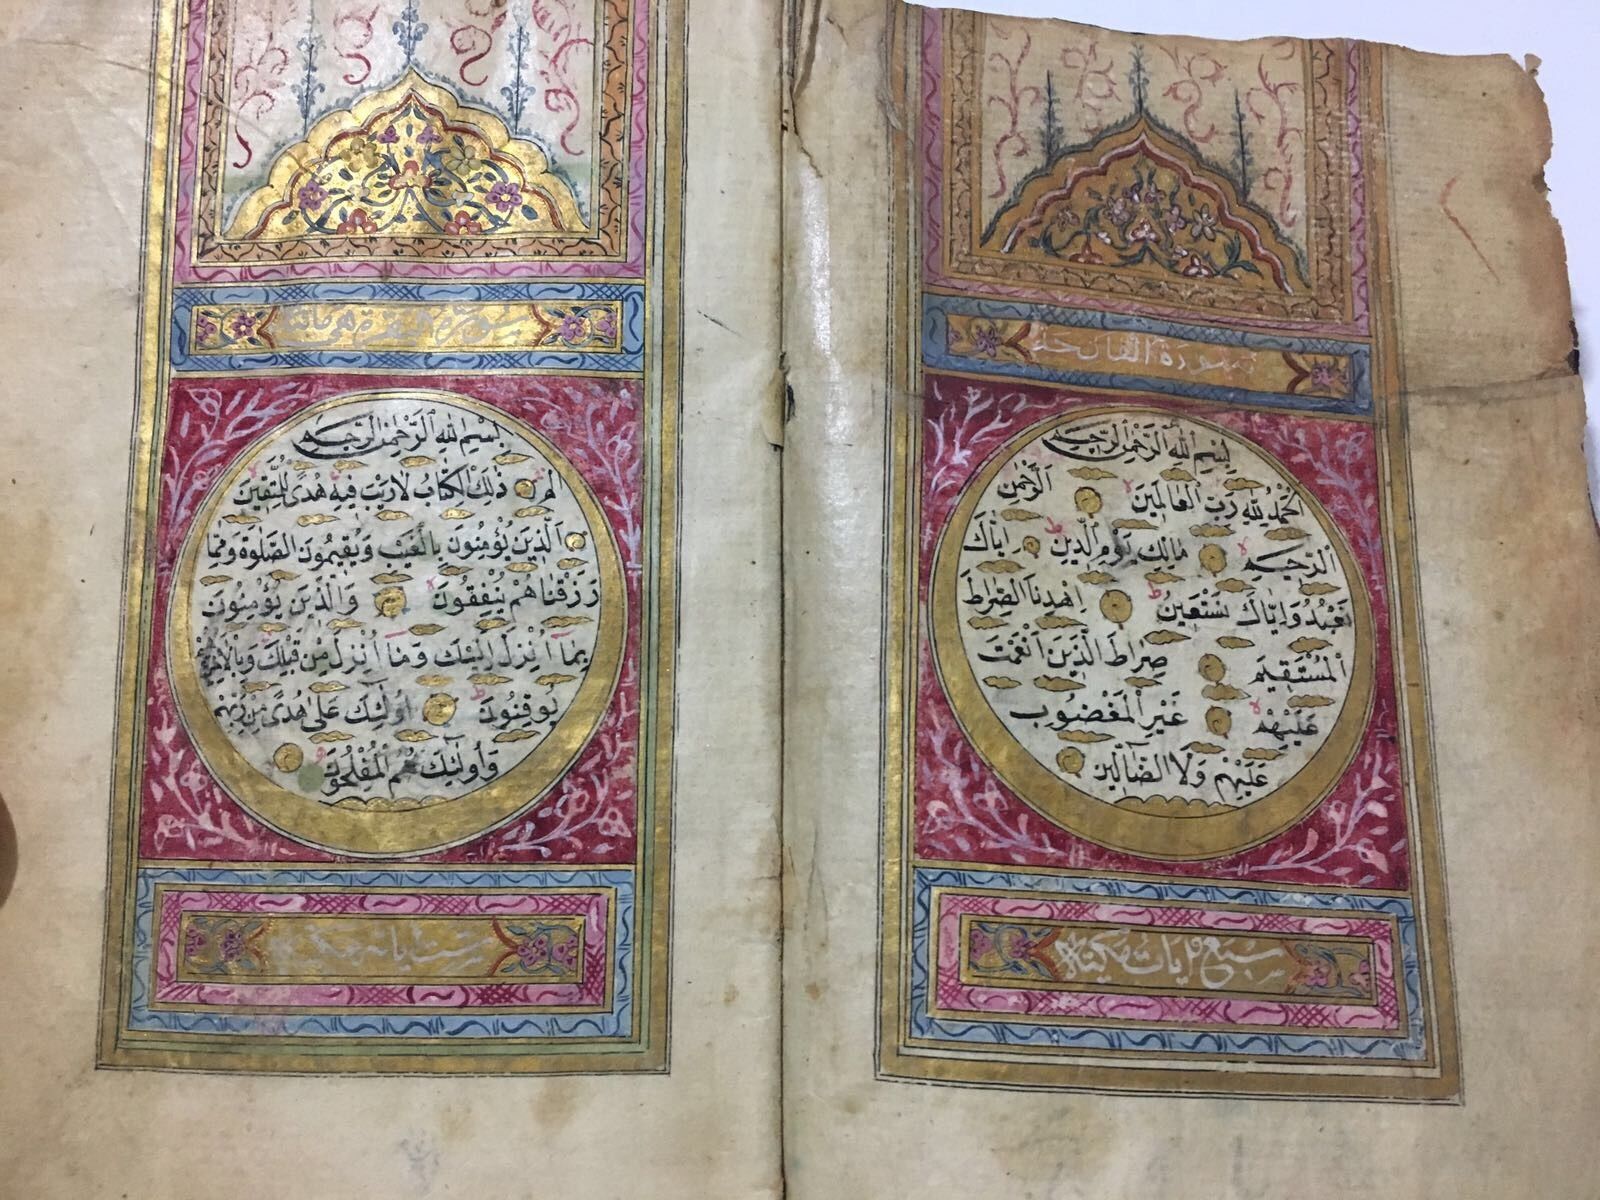 سورة الفاتحة
بِسْمِ اللّٰهِ الرَّحْمٰنِ الرَّحِيمِ
اَلْحَمْدُ لِلّٰهِ رَبِّ الْعَالَمِينَ الرَّحْمٰنِ
الرَّحِيمِ مَالِكِ يَوْمِ الدِّينِ اِيَّاكَ
نَعْبُدُ وَاِيَّاكَ نَسْتَعِينُ اِهْدِنَا الصِّرَاطَ
الْمُسْتَقِيمَ صِرَاطَ الَّذِينَ اَنْعَمْتَ
عَلَيْهِمْ غَيْرِ الْمَغْضُوبِ
عَلَيْهِمْ وَلَا الضَّالِّينَ
سبع آيات مكية
سورة البقرة
بِسْمِ اللّٰهِ الرَّحْمٰنِ الرَّحِيمِ
الٓمٓ ذٰلِكَ الْكِتَابُ لَا رَيْبَ فِيهِ هُدًى لِلْمُتَّقِينَ
اَلَّذِينَ يُؤْمِنُونَ بِالْغَيْبِ وَيُقِيمُونَ الصَّلٰوةَ وَمِمَّا
رَزَقْنَاهُمْ يُنْفِقُونَ وَالَّذِينَ يُؤْمِنُونَ
بِمَٓا اُنْزِلَ اِلَيْكَ وَمَٓا اُنْزِلَ مِنْ قَبْلِكَ وَبِالْاٰخِرَةِ
يُوقِنُونَ اُولٰٓئِكَ عَلٰى هُدًى مِنْ رَبِّهِمْ
وَاُولٰٓئِكَ هُمُ الْمُفْلِحُونَ